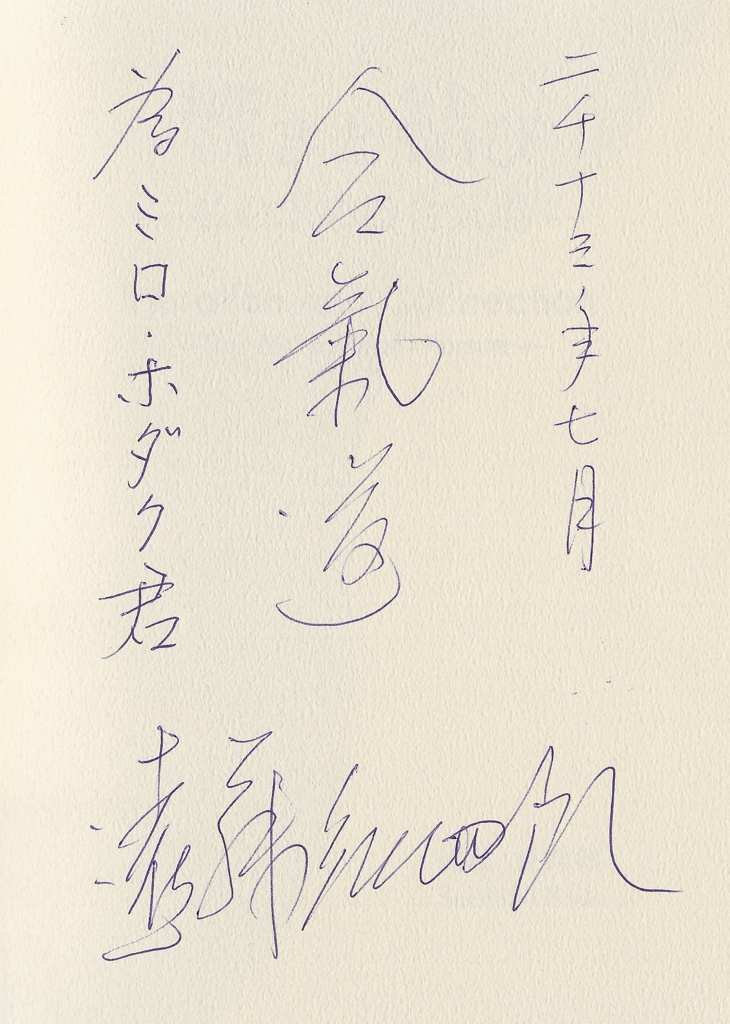 二千十三年七月
合氣道
為ミロ・ホダク君
遠藤征四郎